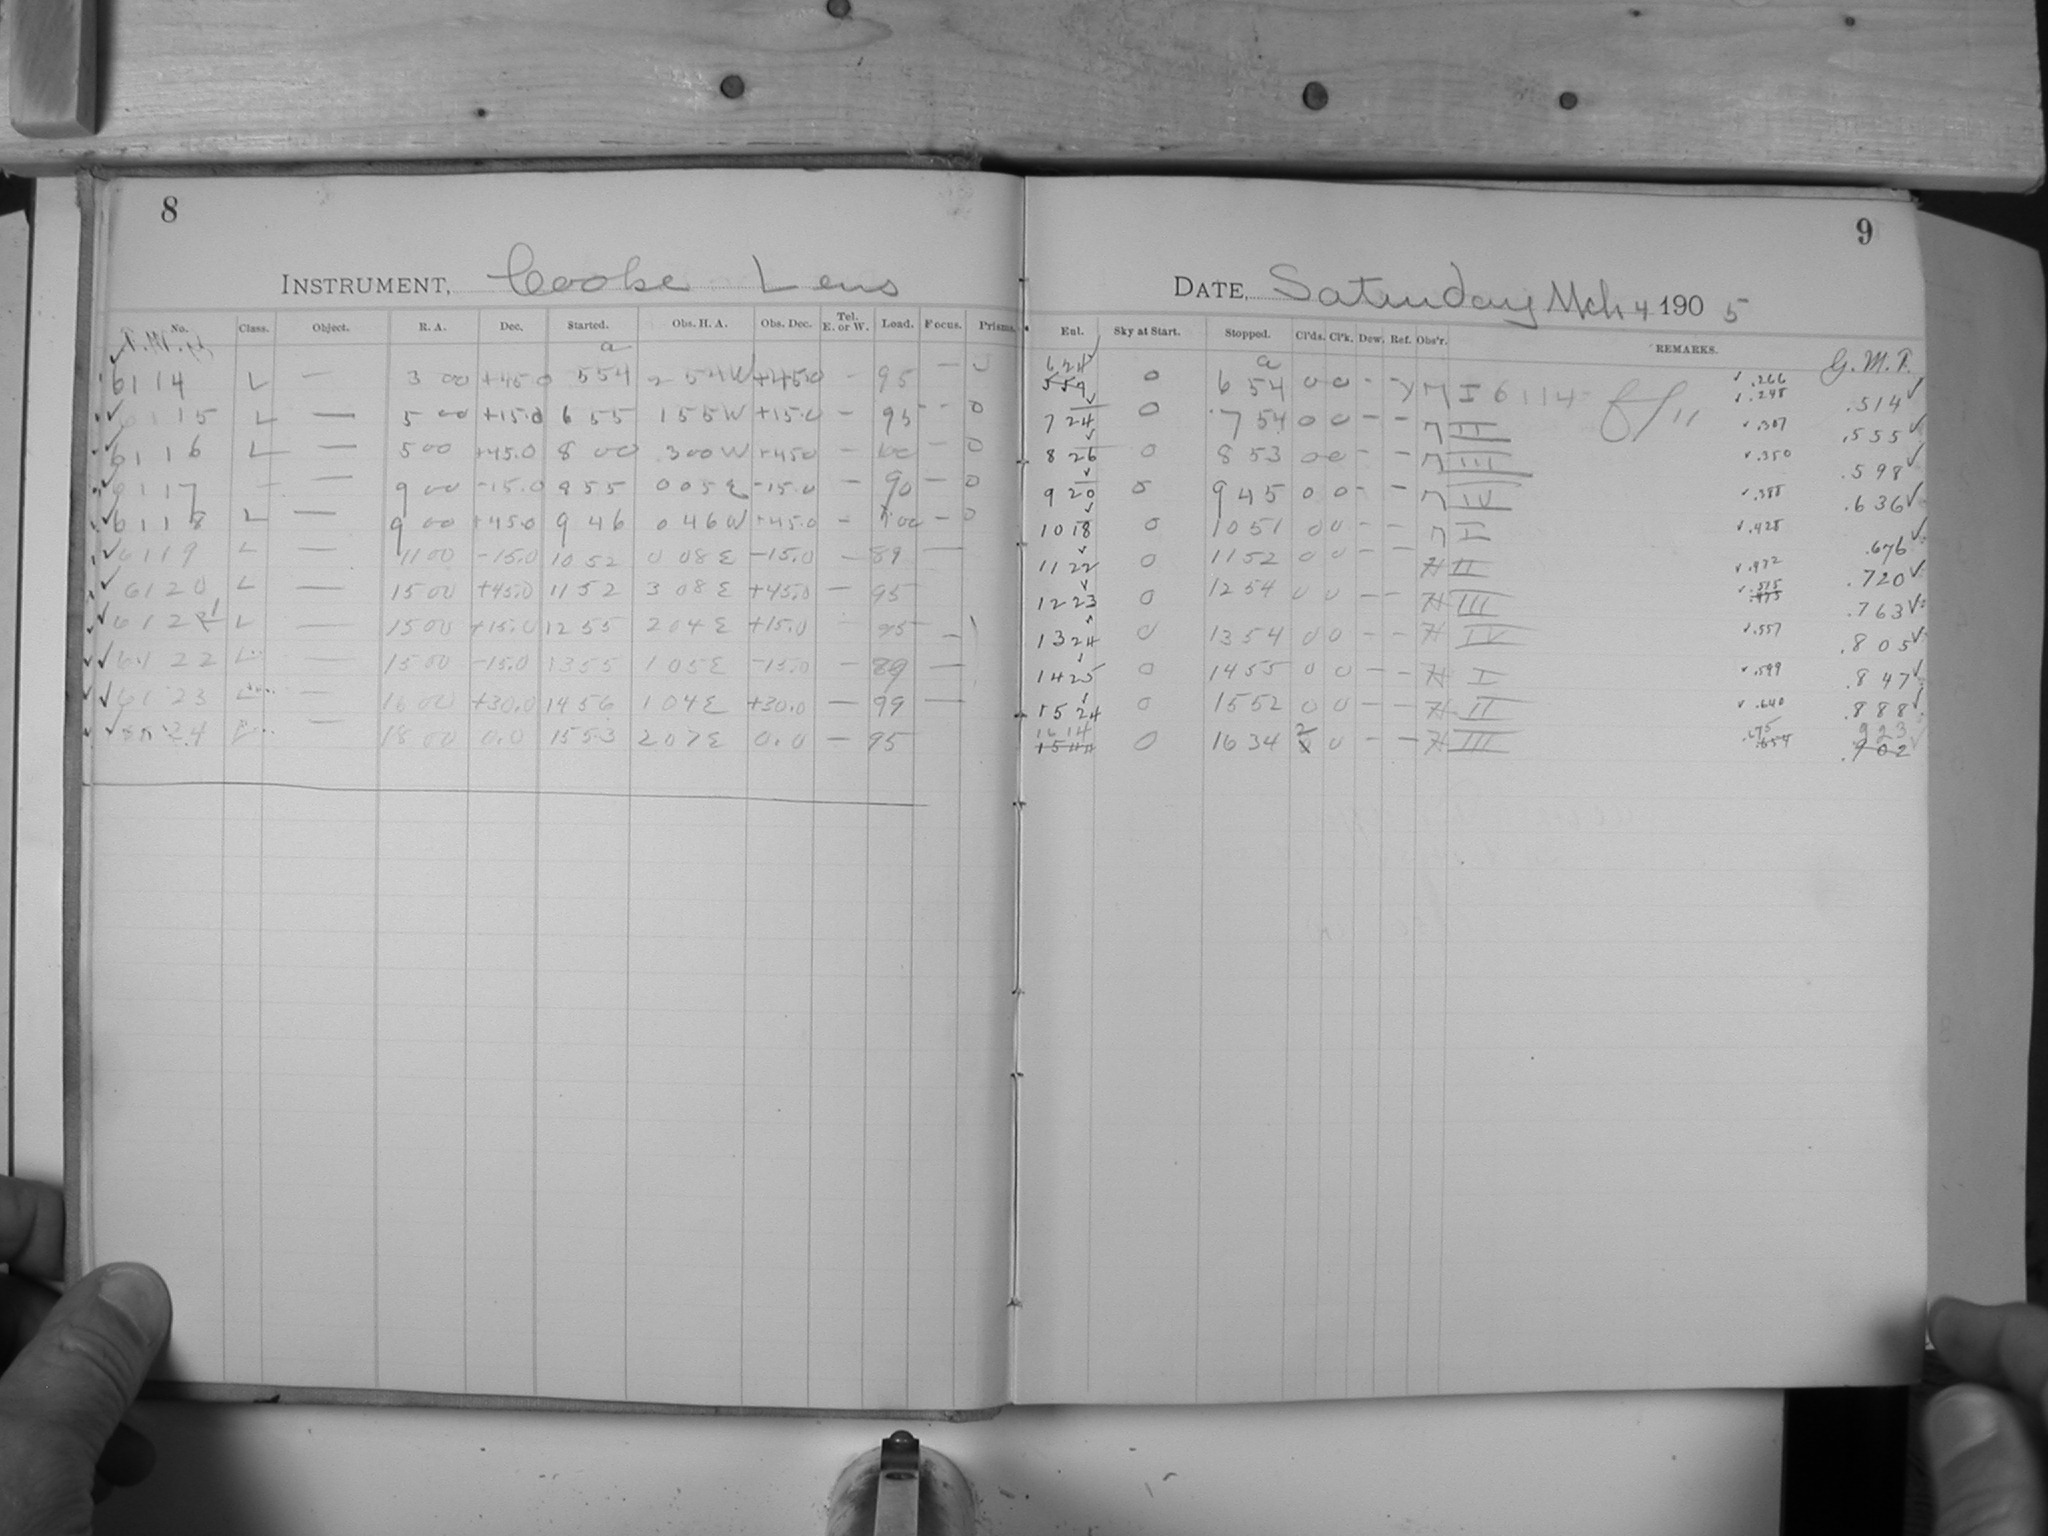 8
INSTRUMENT, Cooke Lens
No. Class. Object. R. A. Dec. Started. Obs. H. A. Obs. Dec. Tel. E. or W. Load. Focus. Prisms.
a
6114 L — 3 00 +45.0 5 54 2 54W +45.0 - 95 — 0
6115 L — 5 00 +15.0 6 55 1 55W +15.0 — 95 - 0
6116 L — 5 00 +45.0 8 00 3 00W +45.0 — 100 - 0
6117 — 9 00 -15.0 8 55 0 05E -15.0 — 90 — 0
6118 L — 9 00 +45.0 9 46 0 46W +45.0 - 100 — 0
6119 L — 11 00 -15.0 10 52 0 08E -15.0 — 89 —
6120 L — 15 00 +45.0 11 52 3 08E +45.0 — 95
6121 L — 15 00 +15.0 12 55 2 04E +15.0 95 —
6122 L — 15 00 -15.0 13 55 1 05E -15.0 — 89 —
6123 L — 16 00 +30.0 14 56 1 04E +30.0 — 99 —
6124 — 18 00 0.0 15 53 2 07E 0.0 — 95
9
DATE, Saturday Mch 4 1905
Enl. Sky at Start. Stopped. Cl'ds. Cl'k. Dew. Ref. Obs'r. REMARKS. G. M. T.
a
6 24 5 59 0 6 54 0 0 - - M I 6114 f/11 .266 .248 .514
7 24 0 7 54 0 0 - - M II .307 .555
8 26 0 8 53 0 0 - - M III .350 .598
9 20 0 9 45 0 0 - - M IV .388 .636
10 18 0 10 51 0 0 - - M I .428 .676
11 22 0 11 52 0 0 - - H II .472 .720
12 23 0 12 54 0 0 - - H III .515 .475 .763
13 24 0 13 54 0 0 - - H IV .557 .805
14 25 0 14 55 0 0 - - H I .599 .847
15 24 0 15 52 0 0 - - H II .640 .888
16 14 0 16 34 2 0 - - H III .675 .654 .923 .902